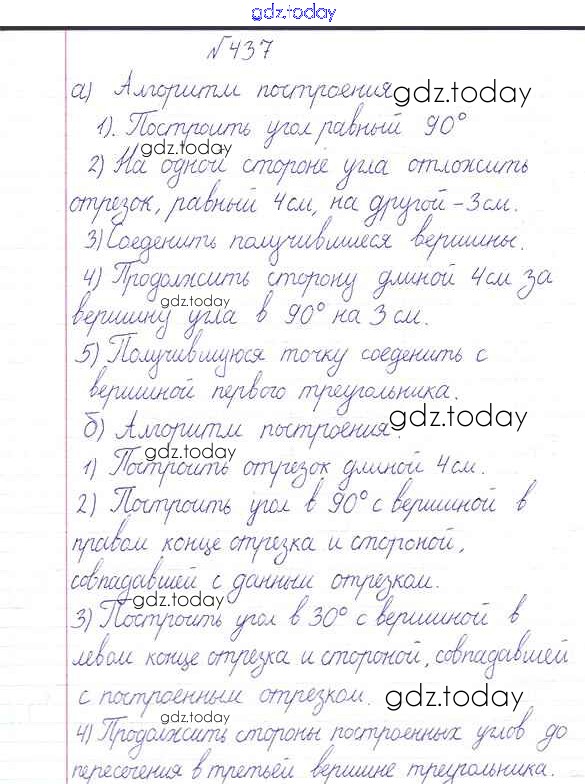 gdz.today
№437
а) Алгоритм построения gdz.today
1). Построить угол равный 90°
gdz.today
2) На одной стороне угла отложить
отрезок, равный 4см, на другой - 3см.
3) Соеденить получившиеся вершины.
4) Продолжить сторону длиной 4см за
gdz.today
вершину угла в 90° на 3см.
5) Получившуюся точку соеденить с
вершиной первого треугольника.
б) Алгоритм построения: gdz.today
gdz.today
1) Построить отрезок длиной 4см.
2) Построить угол в 90° с вершиной в
правом конце отрезка и стороной,
совпадавшей с данным отрезком.
gdz.today
3) Построить угол в 30° с вершиной в
левом конце отрезка и стороной, совпадавшей
с построенным отрезком. gdz.today
gdz.today
4) Продолжить стороны построенных углов до
пересечения в третьей вершине треугольника.